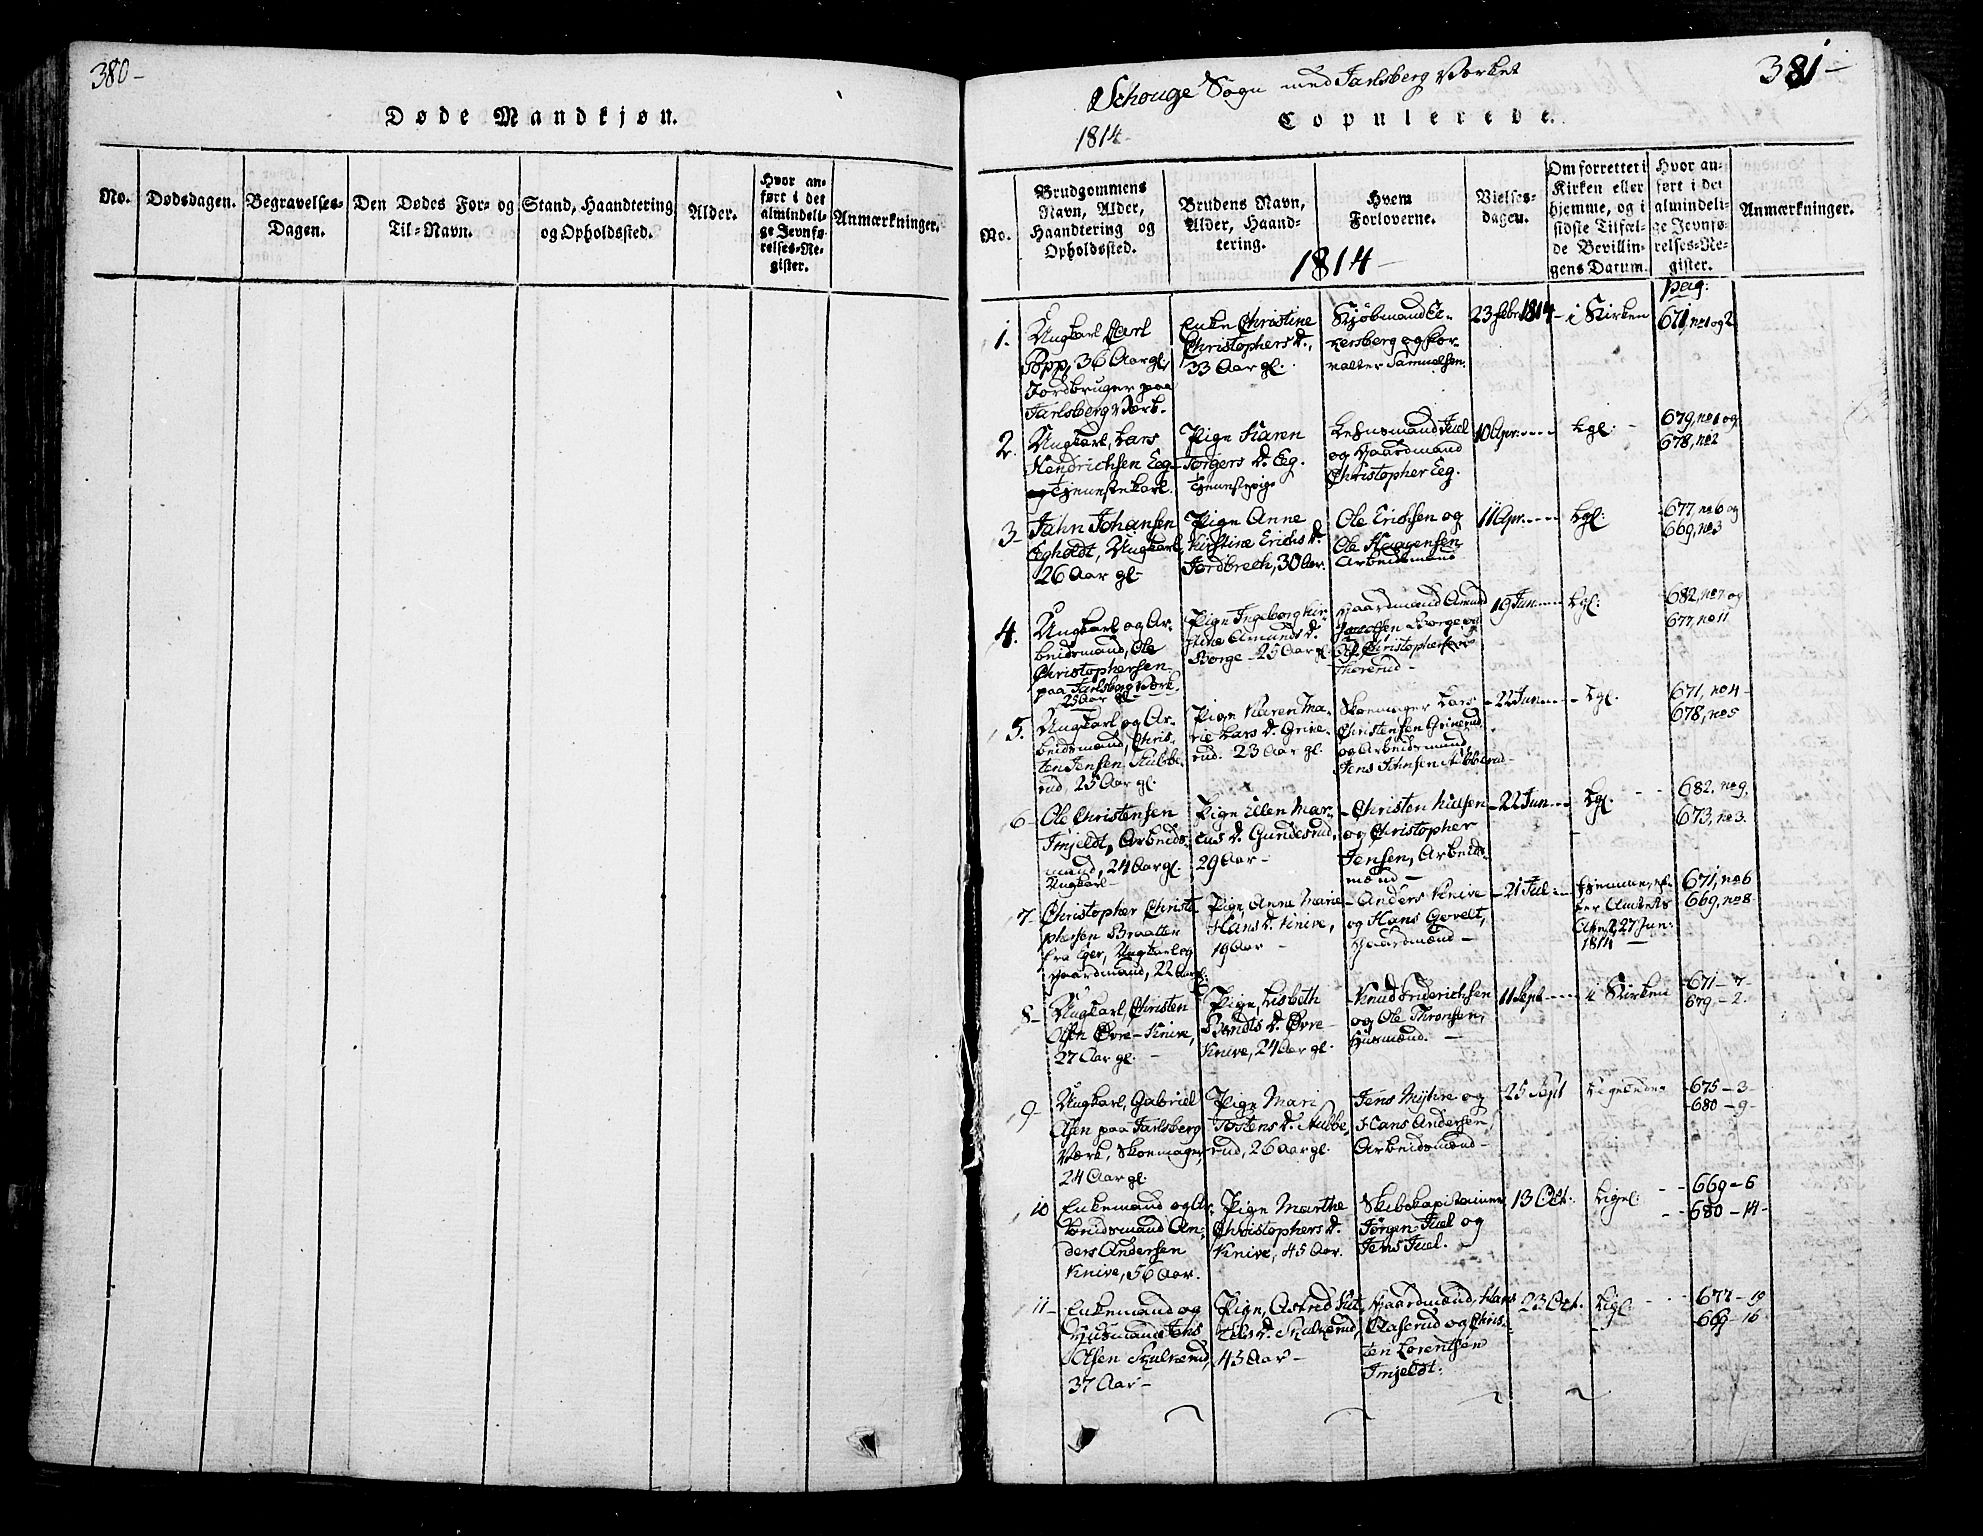 380-
Døde Mandkjøn.
No.
Dødsdagen.
Begravelses-
Dagen.
Den Dødes For- og
Til-Navn.
Stand, Haandtering
og Opholdssted.
Alder.
Hvor an-
ført i det
almindeli-
ge Jevnfø-
relses-Re-
gister.
Anmærkninger.
381-
Schouge Sogn med Jarlsberg Værket
1814-
Copulerede.
No.
Brudgommens
Navn, Alder,
Haandtering og
Opholdssted.
Brudens Navn,
Alder, Haand-
tering.
Hvem
Forloverne.
Vielses-
dagen.
Om forrettet i
Kirken eller
hjemme, og i
sidste Tilfæl-
de Bevillin-
gens Datum.
Hvor an-
ført i det
almindeli-
ge Jevnfø-
relses-Re-
gister.
Anmærkninger.
1814-
Pag:
1.
Ungkarl Carl
Popp, 36 Aar gl,
Jordbruger paa
Jarlsberg Værk.
Enke Christine
Christophers D.,
33 Aar gl.
Kjøbmand Ec-
kersberg og For-
valter Samuelsen.
23 Febr 1814-
i Kirken
671, no 1 og 2
2.
Ungkarl, Lars
Hendrichsen Eeg
og Tjenestekarl.
Pige Karen
Torgers D. Eeg.
Tjenestepige
Lehnsmand Juel
og Gaardmand
Christopher Eeg.
10 Apr.
Lgl:
679, no 1 og
678, no 2
3-
Jahn Johansen
Egholdt, Ungkarl,
26 Aar gl-
Pige Anne
Kirstine Erichs D.
Jordbrech, 30 Aar.
Ole Erichsen og
Ole Haagensen
Arbeidsmænd
11 Apr.
Lgl:
677 no 6 og
669, no 3
4.
Ungkarl og Ar-
beidsmand, Ole
Christophersen
paa Jarlsberg Værk,
25 Aar gl-
Pige Ingeborg Kir-
stine Amunds D.
Borge-25 Aar gl.
Gaardmænd Amund
Jacobsen Borge og
Christophersen
Thorerud-
19 Jun
Lgl:
682, no 7 og
677, no 11
5.
Ungkarl og Ar-
beidsmand, Chris-
ten Jensen Stubbe-
rud, 25 Aar gl.
Pige Karen Ma-
rie Lars D. Grine-
rud. 23 Aar gl.
Skoemager Lars
Christensen Grinerud
og Arbeidsmand,
Jens Johnsen Stubberud-
22 Jun
Lgl.
671, no 4-
678, no 5
6-
Ole Christensen
Imjeldt, Arbeids-
mand, 24 Aar gl.
Ungkarl-
Pige Ellen Mar-
cus D. Gundesrud,
29 Aar-
Christen Nilsen
og Christopher
Jensen, Arbeids-
mænd-
22 Jun
Lgl.
682, no 9.
673, no 3.
7-
Christopher Christo-
phersen Braatten
fra Eger, Ungkarl og
Gaardmand, 22 Aar gl.
Pige, Anne Marie
Hans D. Knive,
19 Aar-
Anders Knive
og Hans Gevelt,
Gaardmænd-
21 Jul
hjemme, ef-
ter Amtets
27 Jun:
1814-
671, no 6
669, no 8
8-
Ungkarl, Christen
Olsen Øvre-Knive,
27 Aar gl.
Pige, Lisbeth
Bendts D. Øvre-
Knive, 24 Aar gl.
Knud Friderichsen
og Ole Thronsen,
Huusmænd.-
11 Sept
i Kirken
671-7-
679-2.
9-
Ungkarl, Gabriel
Olsen paa Jarlsberg
Værk, Skoemager,
24 Aar gl.
Pige Mari
Tostens D. Stubbe-
rud, 26 Aar gl.
Jens Myhre og
Hans Andersen,
Arbeidsmænd-
25 Sept
Ligeledes
675-3-
680-9-
10
Enkemand og Ar-
beidsmand An-
ders Andersen
Knive, 56 Aar.
Pige Marthe
Christophers D.
Knive, 45 Aar.
Skibskapitainer
Jørgen Juel og
Jens Juel.
13 Oct.
Ligel:
669-6
680-14-
11-
Enkemand og
Huusmand Jens
Olsen Skulverud,
37 Aar-
Pige, Astred Kit-
tels D. Skulverud,
45 Aar-
Gaardmænd, Hans
Olaserud og Chris-
ten Lorentsen
Imjeldt.
23 Oct.
Ligl:
677-19
669-16